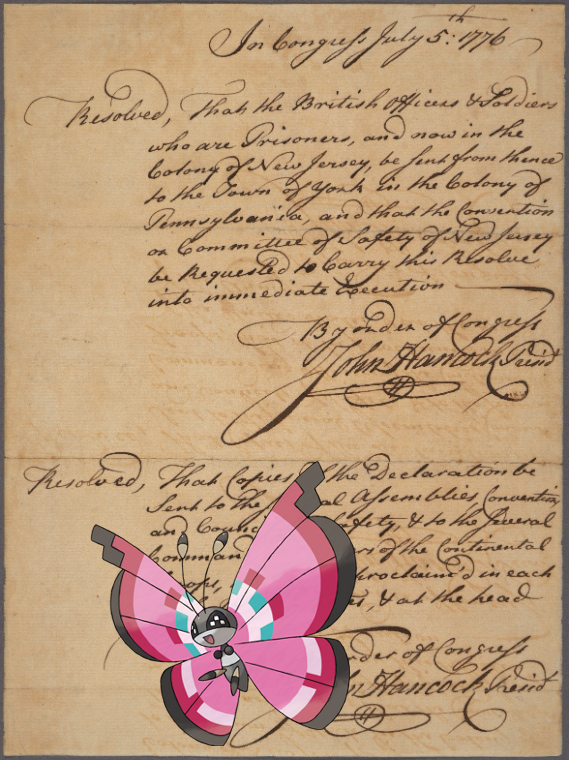 In Congress July 5th: 1776
Resolved, That the British Officers & Soldiers
who are Prisoners, and now in the
Colony of New Jersey, be sent from thence
to the Town of York in the Colony of
Pennsylvania, and that the Convention
or Committee of Safety of New Jersey
be Requested to Carry this Resolve
into immediate Execution
By order of Congress
John Hancock Presidt
Resolved, That Copies the Declaration be
Sent to the al Assemblies, Convention
and Counc afety, & to the several
Comman rs of the Continental
oops, proclaim'd in each
es, & at the head
der of Congress
n Hancock Presidt